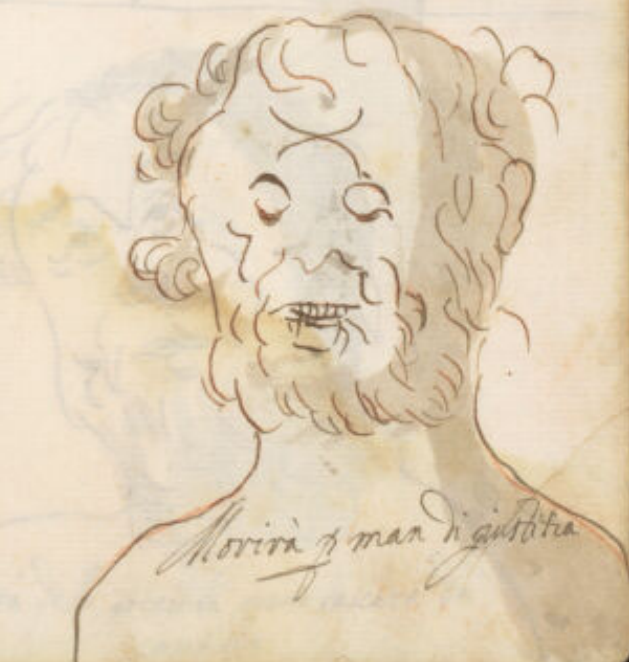 Morirà p man di giustitia